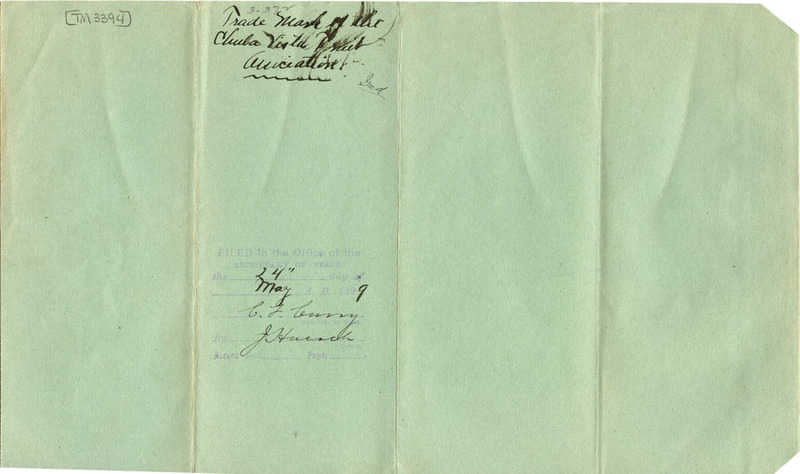 [TM 3394]
Trade Mark of the
Chula Vista Fruit
Association.
FILED in the Office of the
SECRETARY OF STATE
the 24" day of
May A. D. 1899
C. F. Curry
By
Page